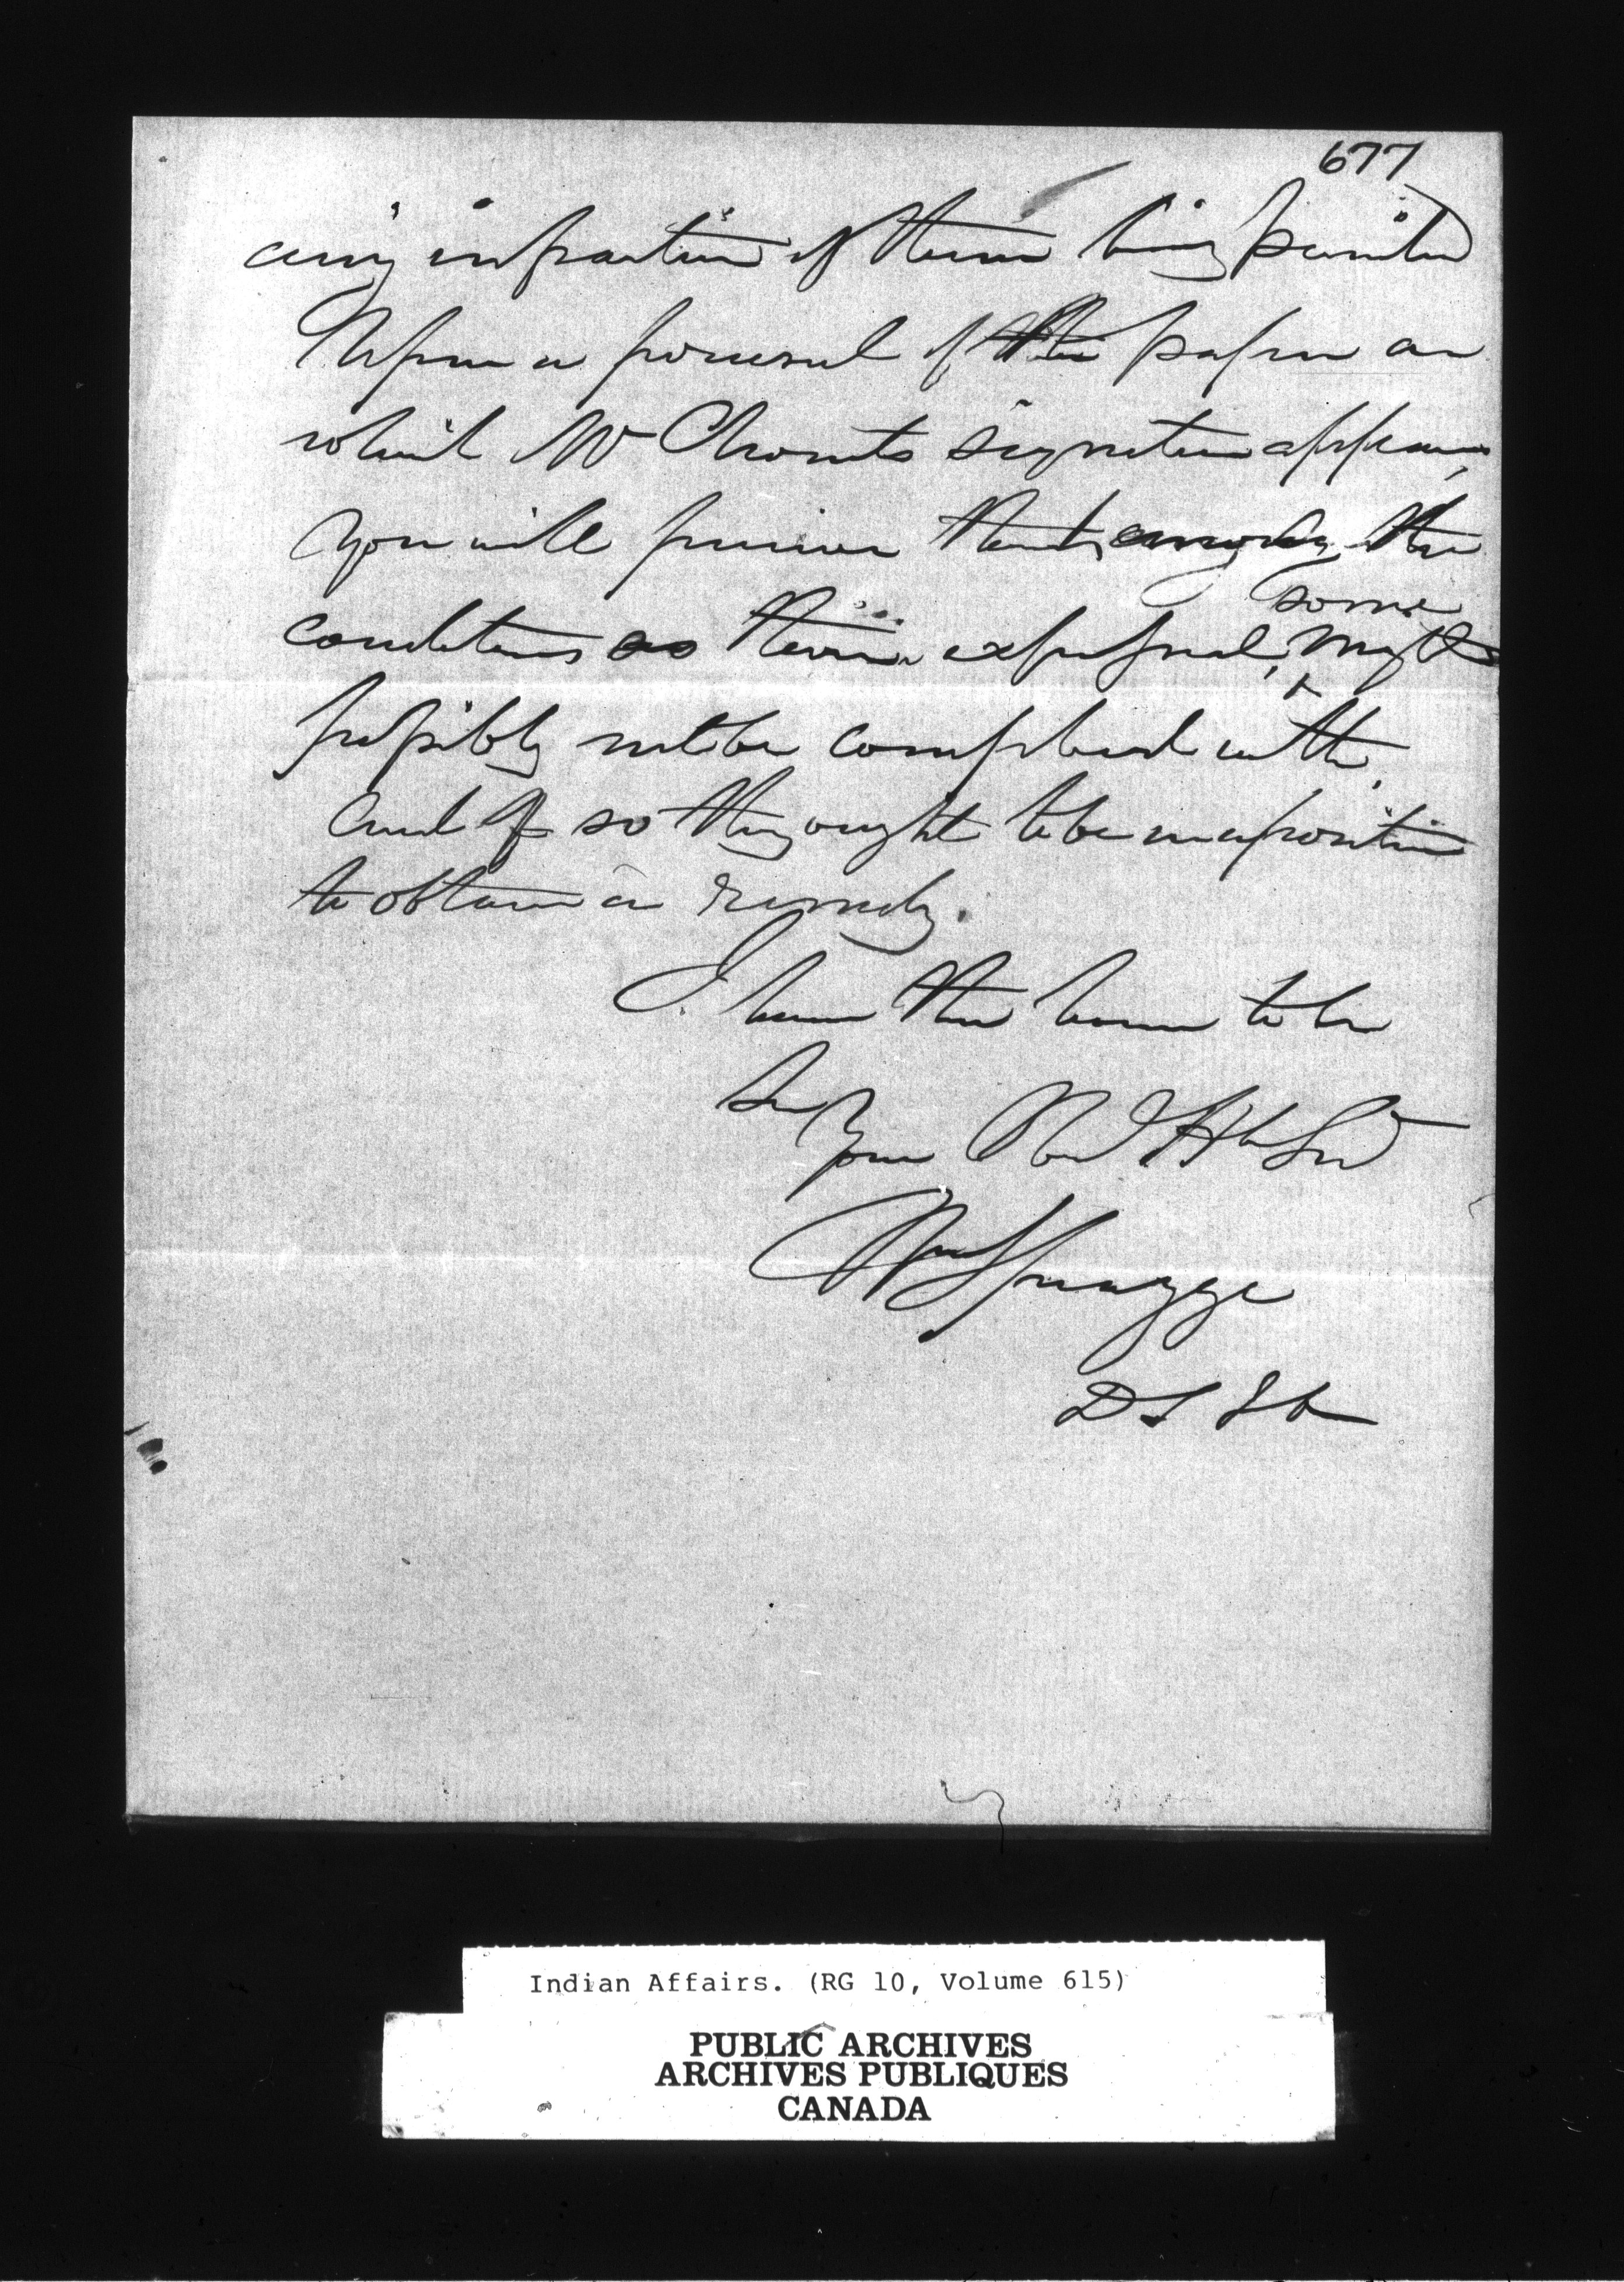 677
any infraction of them being
Upon a perusal of the paper on
which Mr signature appears,
you will perceive that among the
conditions as therein expressed, some might
possibly not be complied with,
And if so they ought to be in a position
to obtain a remedy.
I have the honor to be
Sir
Your
Wm Spragge
D S I A
Indian Affairs. (RG 10, Volume 615)
PUBLIC ARCHIVES
ARCHIVES PUBLIQUES
CANADA